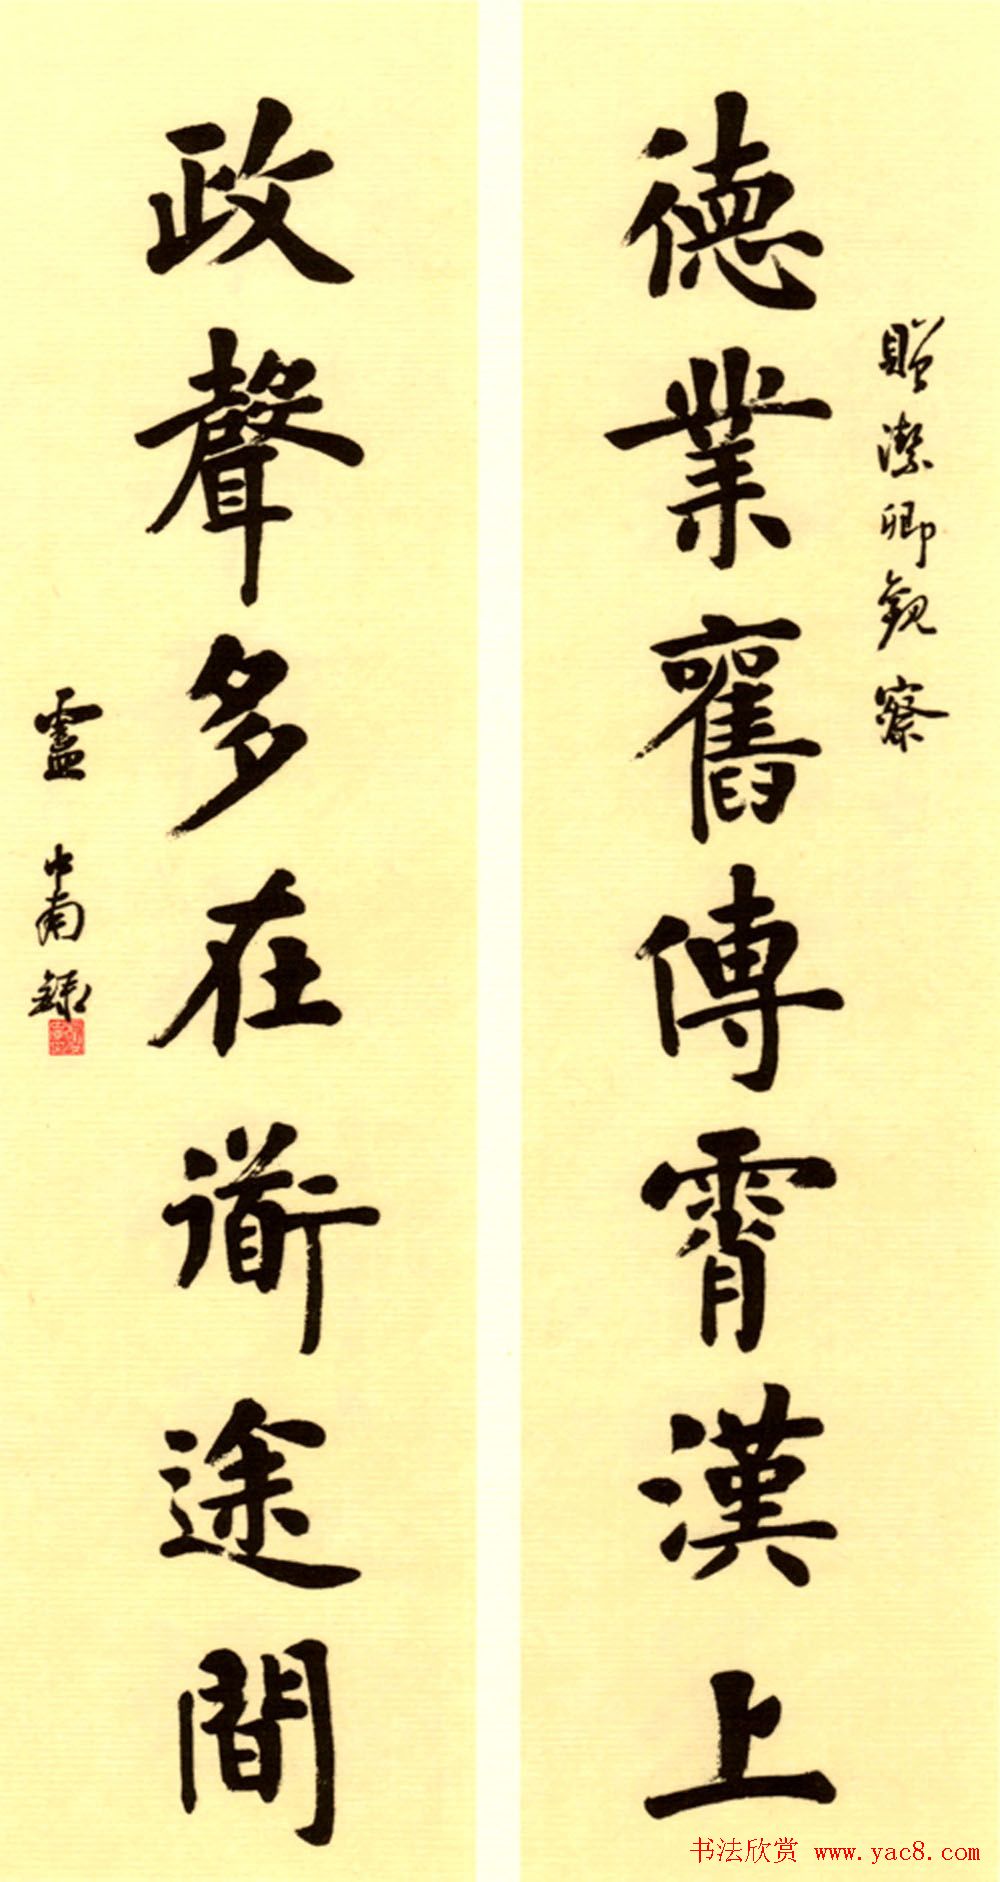 贈潔卿觀察
德業舊傳霄漢上
政聲多在衜途間
盧中南録
书法欣赏 www.yac8.com